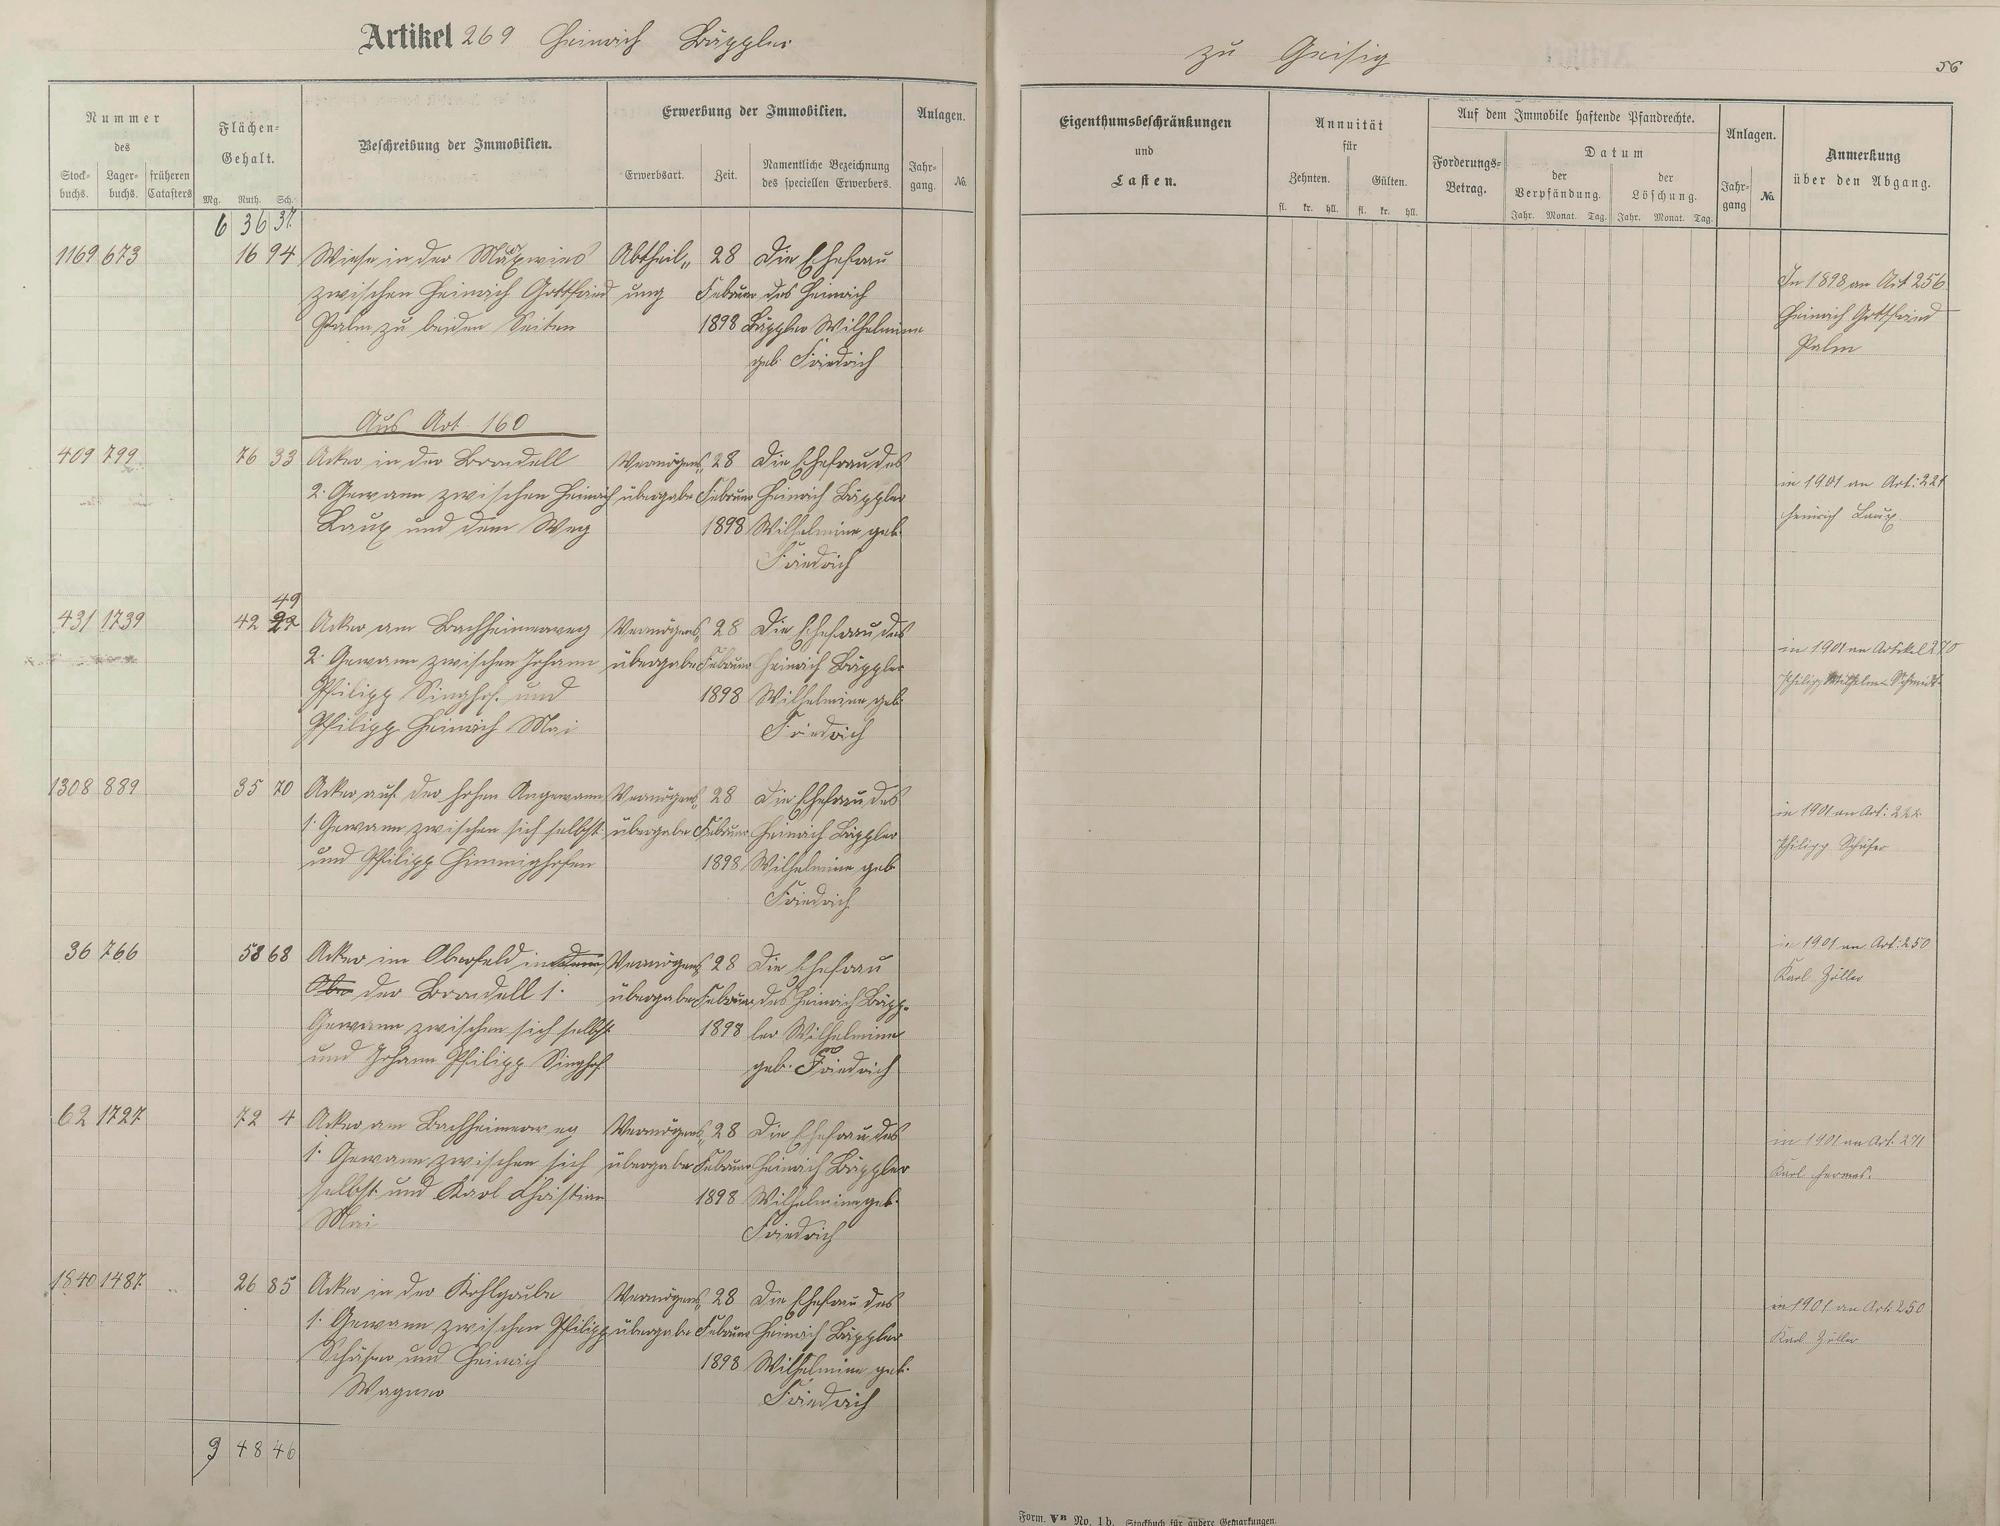 Artikel 269 Heinrich Bäppler
zu Geisig
56
Nummer
des
Stock-
buchs.
Lager-
buchs.
früheren
Catasters
Flächen-
Gehalt.
Mg. Ruth. Sch.
Beschreibung der Immobilien.
Erwerbung der Immobilien.
Erwerbsart.
Zeit.
Namentliche Bezeichnung
des speciellen Erwerbers.
Anlagen.
Jahr-
gang.
No.
Eigenthumsbeschränkungen
und
Lasten.
Annuität
für
Zehnten.
Gülten.
fl. kr. hll. fl. kr. hll.
Auf dem Immobile haftende Pfandrechte.
Forderungs-
Betrag.
Datum
der
Verpfändung.
der
Löschung.
Jahr. Monat. Tag. Jahr. Monat. Tag.
Anlagen.
Jahr-
gang
No.
Anmerkung
über den Abgang.
6 36 37
1169 673 16 94 Wiese in der Abtheil„ 28 Die Ehefrau
zwischen Heinrich Gottfried ung Februar des Heinrich
Palm zu beiden Seiten 1898 Bäppler Wilhelmine
geb. Friedrich
In 1898 an Art 256
Heinrich Gottfried
Palm
Aus Art 160
409 799 76 33 Acker in der Brandell Vermögens„ 28 Die Ehefrau des
2. Gewann zwischen Heinrich übergabe Februar Heinrich Bäppler
Laux und dem Weg 1898 Wilhelmine geb.
Friedrich
in 1901 an Art: 221
Heinrich Laux
49
431 1739 42 22 Acker am Bachheimerweg Vermögens„ 28 Die Ehefrau des
2. Gewann zwischen Johann übergabe Februar Heinrich Bäppler
Philipp Singhof und 1898 Wilhelmine geb.
Philipp Heinrich Mai Friedrich
in 1901 an Artikel 270
Philipp Wilhelm Schmidt
1308 889 35 70 Acker auf der hohen Angewann Vermögens„ 28 Die Ehefrau des
1. Gewann zwischen sich selbst übergabe Februar Heinrich Bäppler
und Philipp Himmighofen 1898 Wilhelmine geb
Friedrich
in 1901 an Art: 222
Philipp Schäfer
36 766 58 68 Acker im Oberfeld in Vermögens„ 28 Die Ehefrau
Ober der Brandell 1. übergabe Februar des Heinrich Bäpp-
Gewann zwischen sich selbst 1898 ler Wilhelmine
und Johann Philipp Singhof geb. Friedrich
in 1901 an Art: 250
Karl Zöller
62 1727 72 4 Acker am Bachheimerweg Vermögens„ 28 Die Ehefrau des
1. Gewann zwischen sich übergabe Februar Heinrich Bäppler
selbst und Karl Christian 1898 Wilhelmine geb.
Mai Friedrich
in 1901 an Art. 271
Karl Hermes.
1840 1487 26 85 Acker in der Kohlgraube Vermögens„ 28 Die Ehefrau des
1. Gewann zwischen Philipp übergabe Februar Heinrich Bäppler
Schäfer und Heinrich 1898 Wilhelmine geb.
Wagner Friedrich
in 1901 an Art. 250
Karl Zöller
9 48 46
Form. VB No. 1b. Stockbuch für andere Gemarkungen.